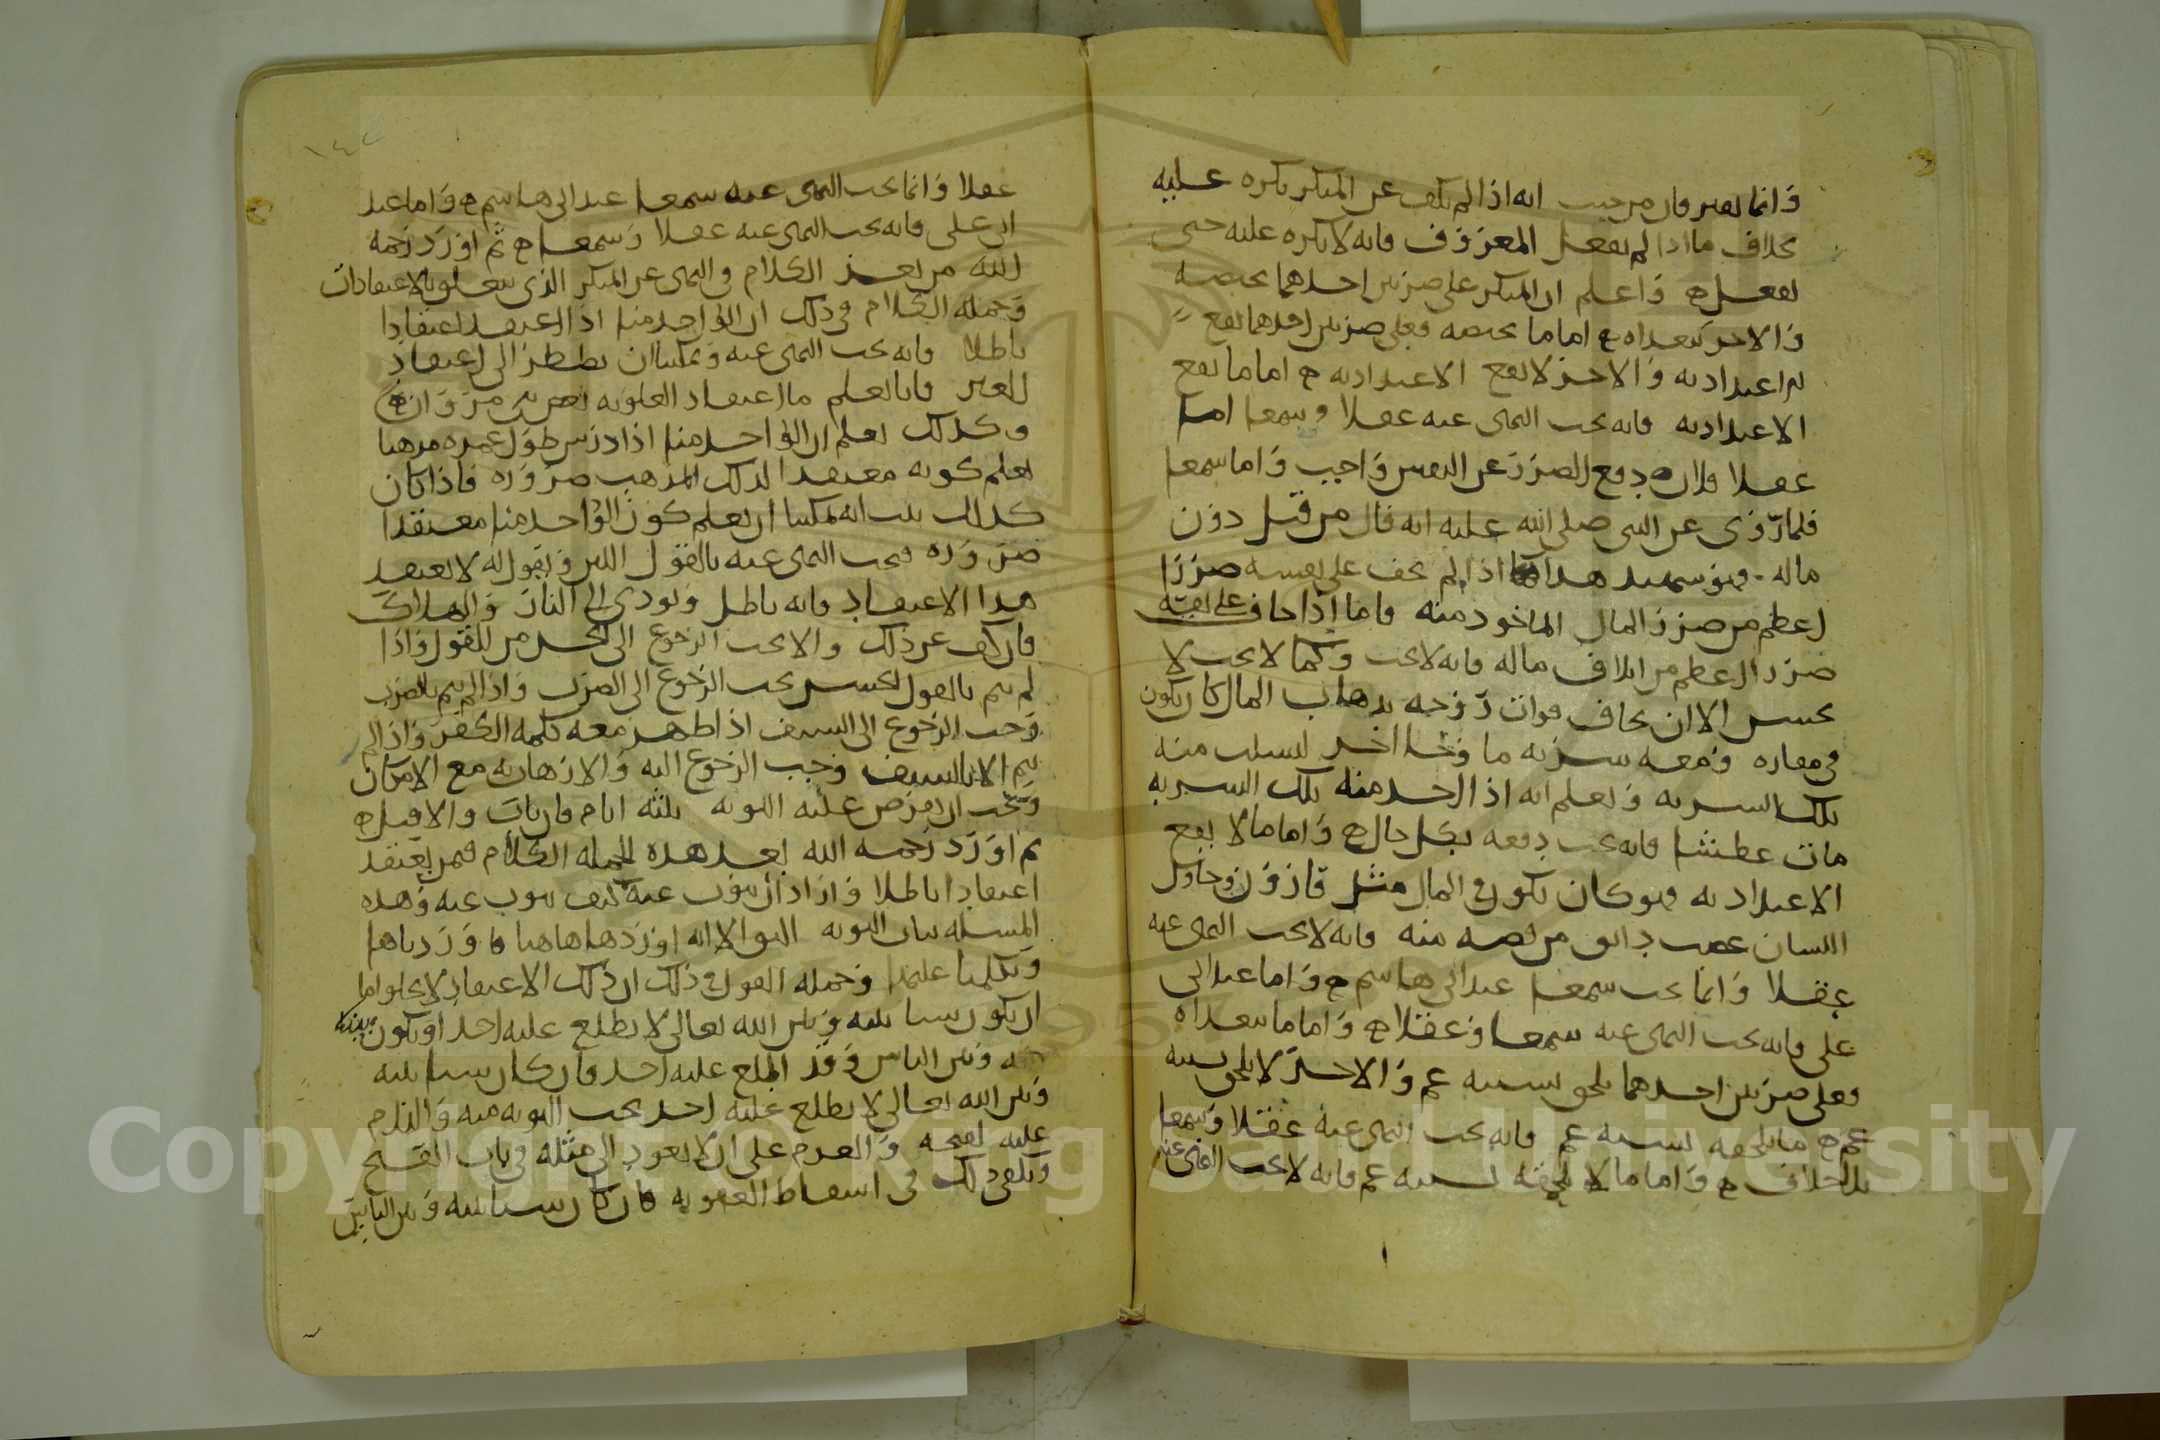 وانما يفترقان من حيث انه اذا لم يكف عن المنكر يكره عليه
بخلاف ما اذا لم يفعل المعروف فانه لا يكره عليه حتى
يفعل واعلم ان المنكر على ضربين احدهما يختصه
والاخر يتعداه اما ما يختصه فعلى ضربين احدهما يقع
به اعتداد به والاخر لا يقع الاعتداد به اما ما يقع
الاعتداد به فانه يجب النهي عنه عقلا وسمعا اما
عقلا فلان دفع الضرر عن النفس واجب واما سمعا
فلما روي عن النبي صلى الله عليه انه قال من قتل دون
ماله فهو شهيد هذا اذا لم يخف على نفسه ضررا
اعظم من ضرر المال الماخوذ منه فاما اذا خاف على نفسه
ضررا اعظم من اتلاف ماله فانه لا يجب وكما لا يجب لا
يحسن الا ان يخاف فوات روحه بذهاب المال كان يكون
في مفازه ومعه شربة ما وجا اخر ليسلب منه
تلك الشربه ويعلم انه اذا اخذ منه تلك الشربه
مات عطشا فانه يجب دفعه بكل حال واما ما لا يقع
الاعتداد به فهو كان يكون في المال مثل قارون وحاول
انسان غصب دانق من نصه منه فانه لا يجب النهي عنه
عقلا وانما يجب سمعا عند ابي هاشم واما عند ابي
علي فانه يجب النهي عنه سمعا وعقلا واما ما يتعداه
فعلى ضربين احدهما يلحق بسببه غم والاخر لا يلحق بسببه
غم ما يلحقه بسببه غم فانه يجب النهي عنه عقلا وسمعا
بلا خلاف واما ما لا يلحقه بسببه غم فانه لا يجب النهي عنه
١٤٢
عقلا وانما يجب النهي عنه سمعا عند ابي هاشم واما عند
ابي علي فانه يجب النهي عنه عقلا وسمعا ثم اورد رحمه
الله من بعد الكلام في النهي عن المنكر الذي يتعلق بالاعتقادات
وجملة الكلام في ذلك ان الواحد منا اذا اعتقد اعتقادا
باطلا فانه يجب النهي عنه ويمكننا ان نضطر الى اعتقاد
الغير فانا نعلم ما اعتقاد العلويه
وكذلك نعلم ان الواحد منا اذا درس طول عمره مذهبا
نعلم كونه معتقدا لذلك المذهب ضروره فاذا كان
كذلك ثبت انه يمكننا ان نعلم كون الواحد منا معتقدا
ضروره فيجب النهي عنه بالقول اللين ونقول له لا تعتقد
هذا الاعتقاد فانه باطل ويودي الى النار والهلاك
فان كف عن ذلك والا يجب الرجوع الى الخشن من القول واذا
لم يتم بالقول الخشن يجب الرجوع الى الضرب واذا لم يتم بالضرب
وجب الرجوع الى السيف اذا ظهر معه كلمة الكفر واذا لم
يتم الا بالسيف وجب الرجوع اليه والازهاق به مع الامكان
ويجب ان يعرض عليه التوبه ثلثة ايام فان تاب والا قتل
ثم اورد رحمه الله بعد هذه الجمله الكلام فيمن يعتقد
اعتقادا باطلا واراد ان يتوب عنه كيف يتوب عنه وهذه
المسئله بباب التوبه اليق الا انه اوردها هاهنا فاوردناها
وتكلمنا عليها وجملة القول في ذلك ان ذلك الاعتقاد لا يخلو اما
ان يكون سيا بينه وبين الله تعالى لا يطلع عليه احد او يكون بينه
وبين الناس وقد اطلع عليه احد فان كان سيا بينه
وبين الله تعالى لا يطلع عليه احد يجب التوبه منه والندم
عليه لقبحه والعزم على ان لا يعود الى مثله في باب القبح
ويكفي ذلك في اسقاط العقوبه فان كان سيا بينه وبين الناس
Copyright © King Saud University
1957